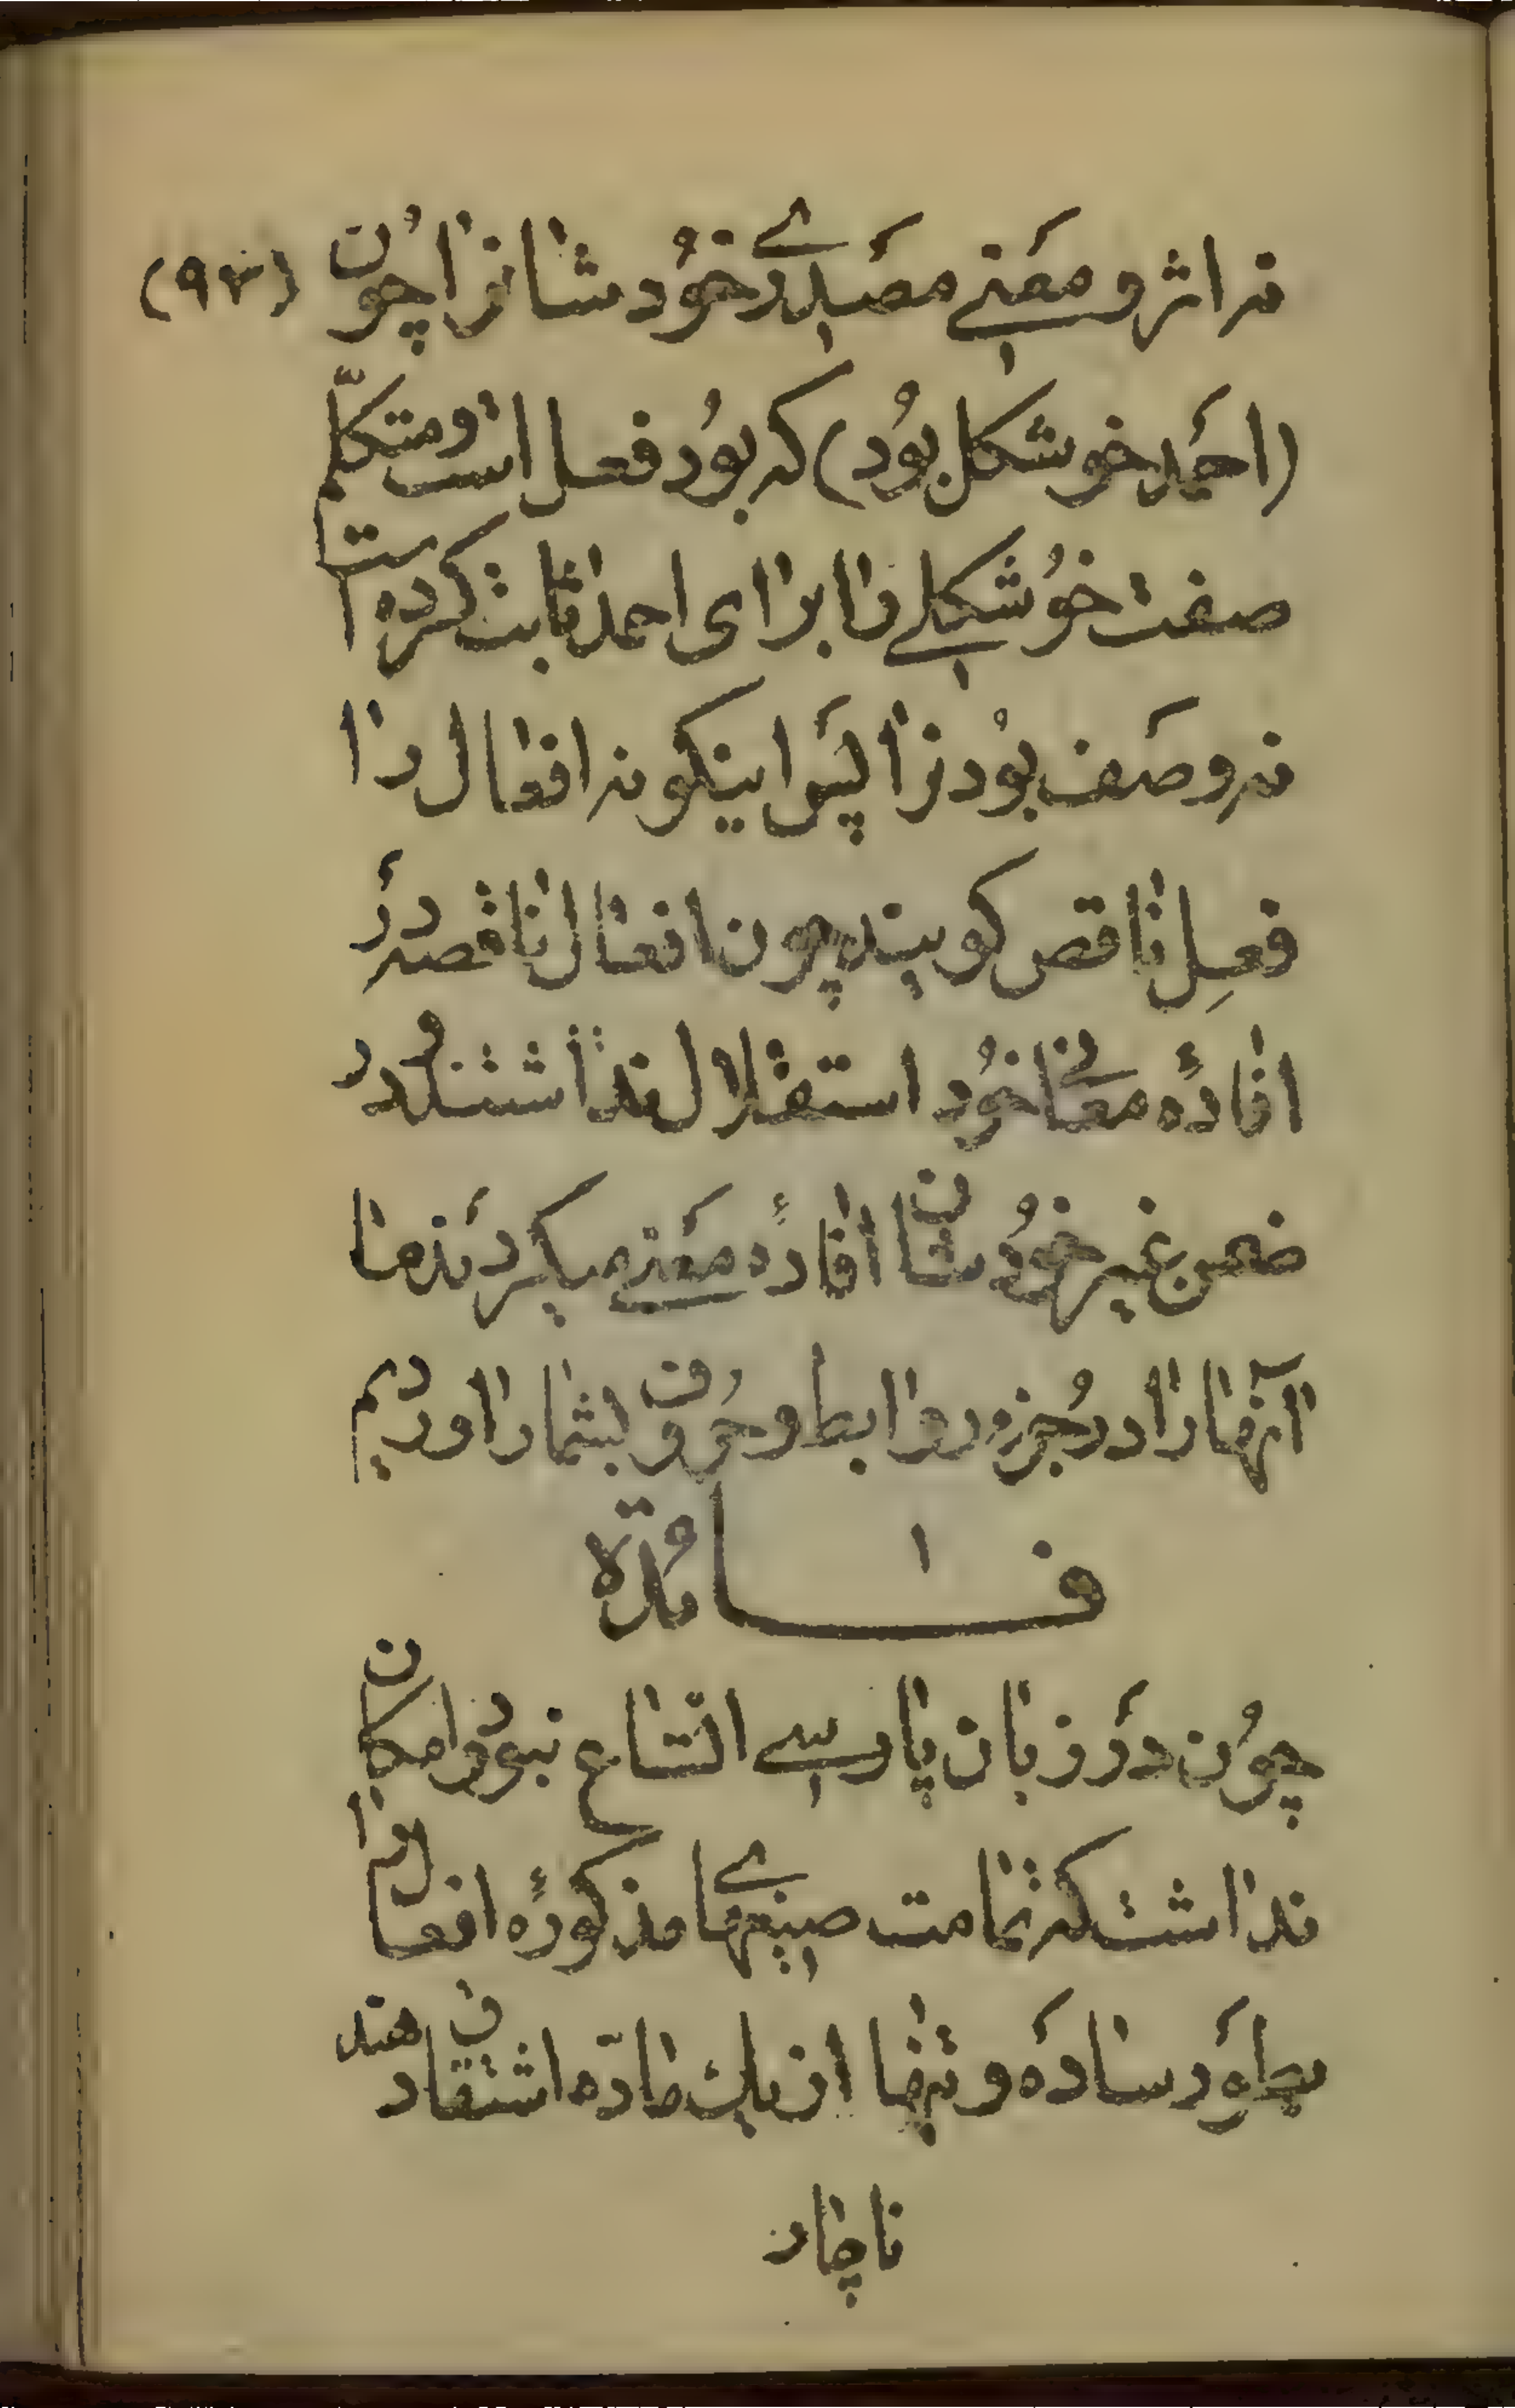 نه اثر و معنی مصدری خود شانرا چون (۹۳)
(احمد خوشکل بود) که بود فعل است و متکلم
صفت خوشکلی را برای احمد ثابت کرده است
نه وصف بودنرا پس اینکونه افعال را
فعل ناقص کویند چون افعال ناقصه در
افادهٔ معانی خود استقلال نداشتند و در
ضمن غیر خودشان افادهٔ معنی میکردند ما
آنها را در جزو روابط و حروف بشمار اوردیم
فـائده
چون در زبان پارسی اتساع نبود و امکان
نداشت که تمامت صیغهای مذکورهٔ افعال را
بطور ساده و تنها از یک مادّه اشتقاق دهند
ناچار